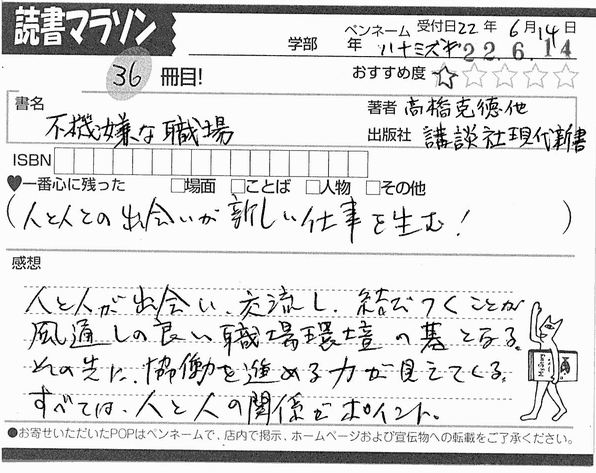 読書マラソン
学部 年 ペンネーム ハナミズキ 受付日22年 6月14日
22.6.14
36冊目!
おすすめ度 ☆☆☆☆☆
書名 不機嫌な職場
著者 高橋克徳他
出版社 講談社現代新書
ISBN
♥一番心に残った □場面 □ことば □人物 □その他
(人と人との出会いが新しい仕事を生む!)
感想
人と人が出会い、交流し、結びつくことが
風通しの良い職場環境の基となる。
その先に、協働を進める力が見えてくる。
すべては、人と人の関係がポイント。
●お寄せいただいたPOPはペンネームで、店内で掲示、ホームページおよび宣伝物への転載をご了承ください。